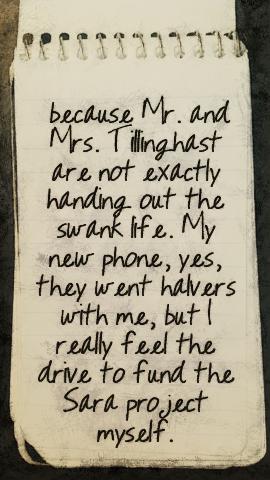 because Mr. and
Mrs. Tillinghast
are not exactly
handing out the
swank life. My
new phone, yes,
they went halvers
with me, but I
really feel the
drive to fund the
Sara project
myself.